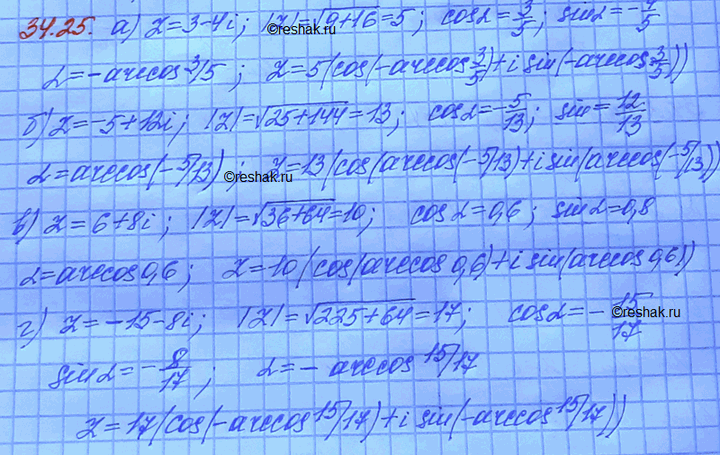 34.25. а) z=3-4i; |z|=√9+16=5; cosα=3/5; sinα=-4/5
©reshak.ru
α=-arccos 3/5; z=5(cos(-arccos 3/5)+i sin(-arccos 3/5))
©reshak.ru
б) z=-5+12i; |z|=√25+144=13; cosα=-5/13; sin=12/13
α=arccos(-5/13); z=13(cos(arccos(-5/13)+i sin(arccos(-5/13))
©reshak.ru
в) z=6+8i; |z|=√36+64=10; cosα=0,6; sinα=0,8
α=arccos0,6; z=10(cos(arccos0,6)+i sin(arccos0,6))
©reshak.ru
г) z=-15-8i; |z|=√225+64=17; cosα=-15/17
sinα=-8/17; α=-arccos 15/17
z=17(cos(-arccos 15/17)+i sin(-arccos 15/17))